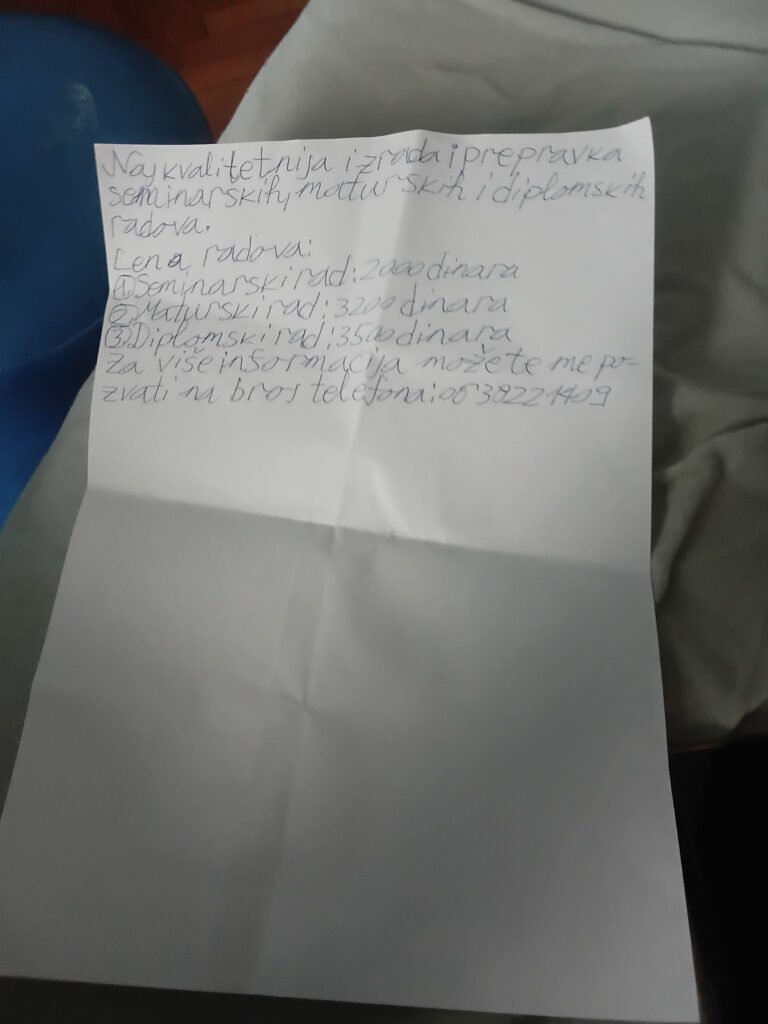 Najkvalitetnija izrada i prepravka
seminarskih, maturskih i diplomskih
radova.
Cena radova:
① Seminarski rad: 2000 dinara
② Maturski rad: 3200 dinara
③ Diplomski rad: 3500 dinara
Za više informacija možete me po-
zvati na broj telefona: 0638221409